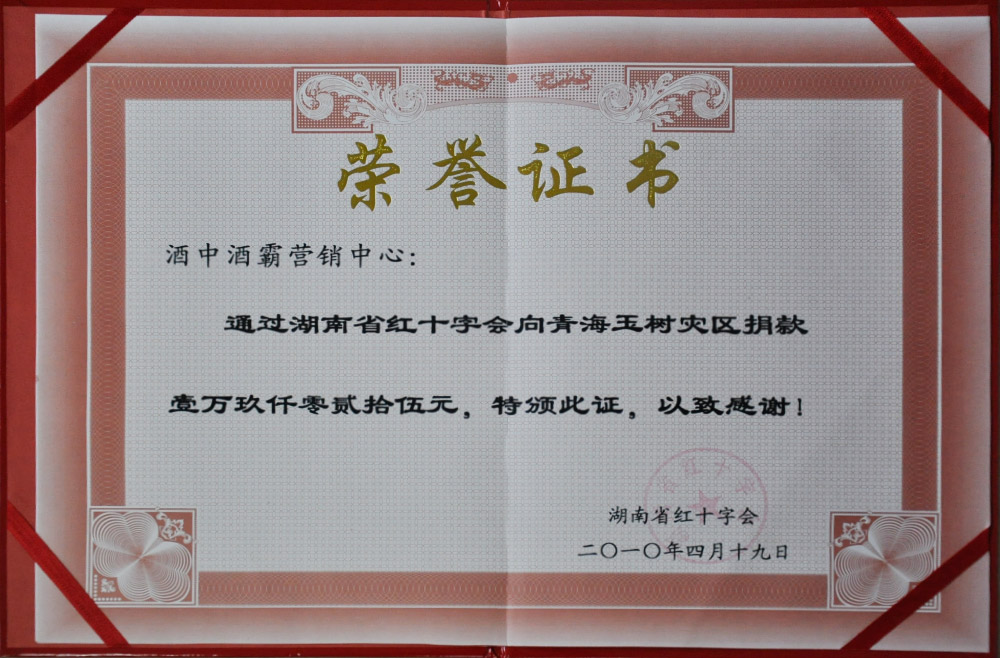 荣誉证书
酒中酒霸营销中心：
通过湖南省红十字会向青海玉树灾区捐款
壹万玖仟零贰拾伍元，特颁此证，以致感谢！
湖南省红十字会
二〇一〇年四月十九日